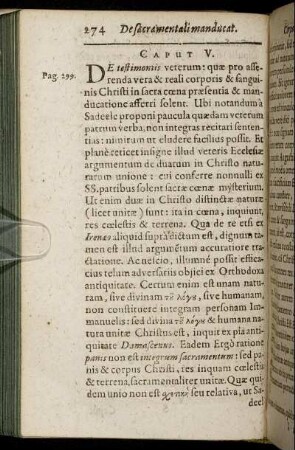 274 De sacramentali manducat.
CAPUT V.
Pag. 299.
DE testimoniis veterum: quæ pro asse-
renda vera & reali corporis & sangui-
nis Christi in sacra cœna præsentia & man-
ducatione afferri solent. Ubi notandum à
Sadeele proponi paucula quædam veterum
patrum verba, non integras recitari senten-
tias: nimirum ut eludere facilius possit. Et
planè reticet insigne illud veteris Ecclesiæ
argumentum de duarum in Christo natu-
rarum unione: cui conferre nonnulli ex
SS. patribus solent sacræ cœnæ mysterium.
Ut enim duæ in Christo distinctæ naturæ
(licet unitæ) sunt: ita in cœna, inquiunt,
res cœlestis & terrena. Qua de re etsi ex
Irenæo aliquid suprà dictum est, dignum ta-
men est illud argumentum accuratiore tra-
ctatione. Ac nescio, illumne possit effica-
cius telum adversariis objici ex Orthodoxa
antiquitate. Certum enim est unam natu-
ram, sive divinam τῦ λόγυ, sive humanam,
non constituere integram personam Im-
manuelis: sed divina τῦ λόγυ & humana na-
tura unitæ Christus est, inquit ex pia anti-
quitate Damascenus. Eadem Ergò ratione
panis non est integrum sacramentum: sed pa-
nis & corpus Christi, res inquam cœlestis
& terrena, sacramentaliter unitæ. Quæ qui-
dem unio non est seu relativa, ut Sa-
deel